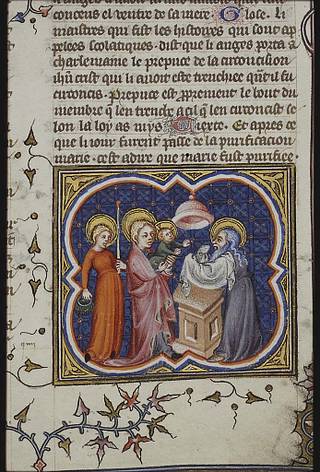 conceus el ventre de sa mere. Glose. Li
maistres qui fist les histoires qui sont ap
pelees scolastiques. dist que li anges porta a
charlemaine le prepuce de la circoncision
ihũ crist qui li auoit este trenchiee quãt il fu
circoncis. Prepuce est proprement le bout du
membre q̃ len trenche a cil q̃ len circoncist se
lon la loy as
Et apres ce
que li iour furent passe de la purification
marie. cest a dire que marie fust purifiee